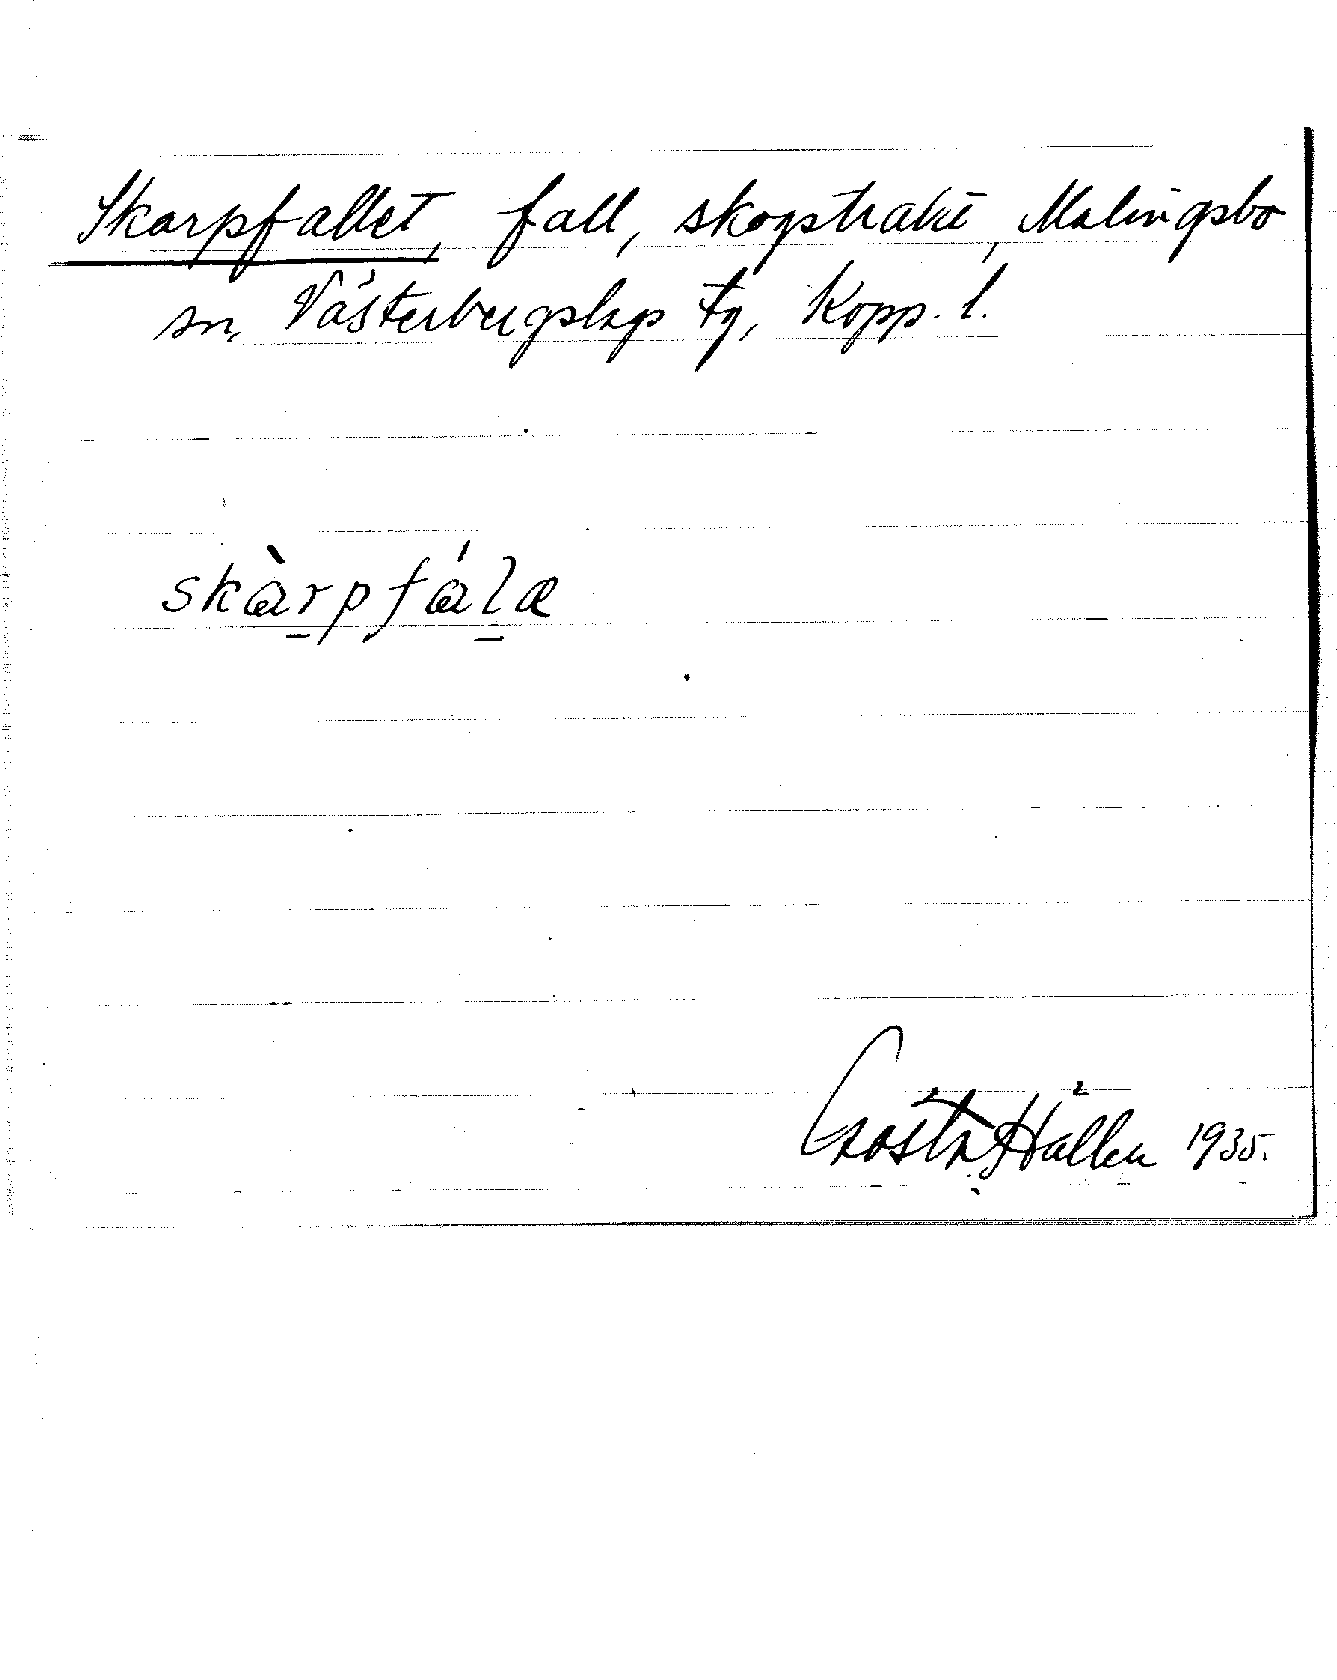 Skarpfallet, fall, skogstrakt, Malingsbo
sn, Västerbergslags tg, Kopp. l.
skàr̲pfál̲æ
Gösta Hallén 1935.